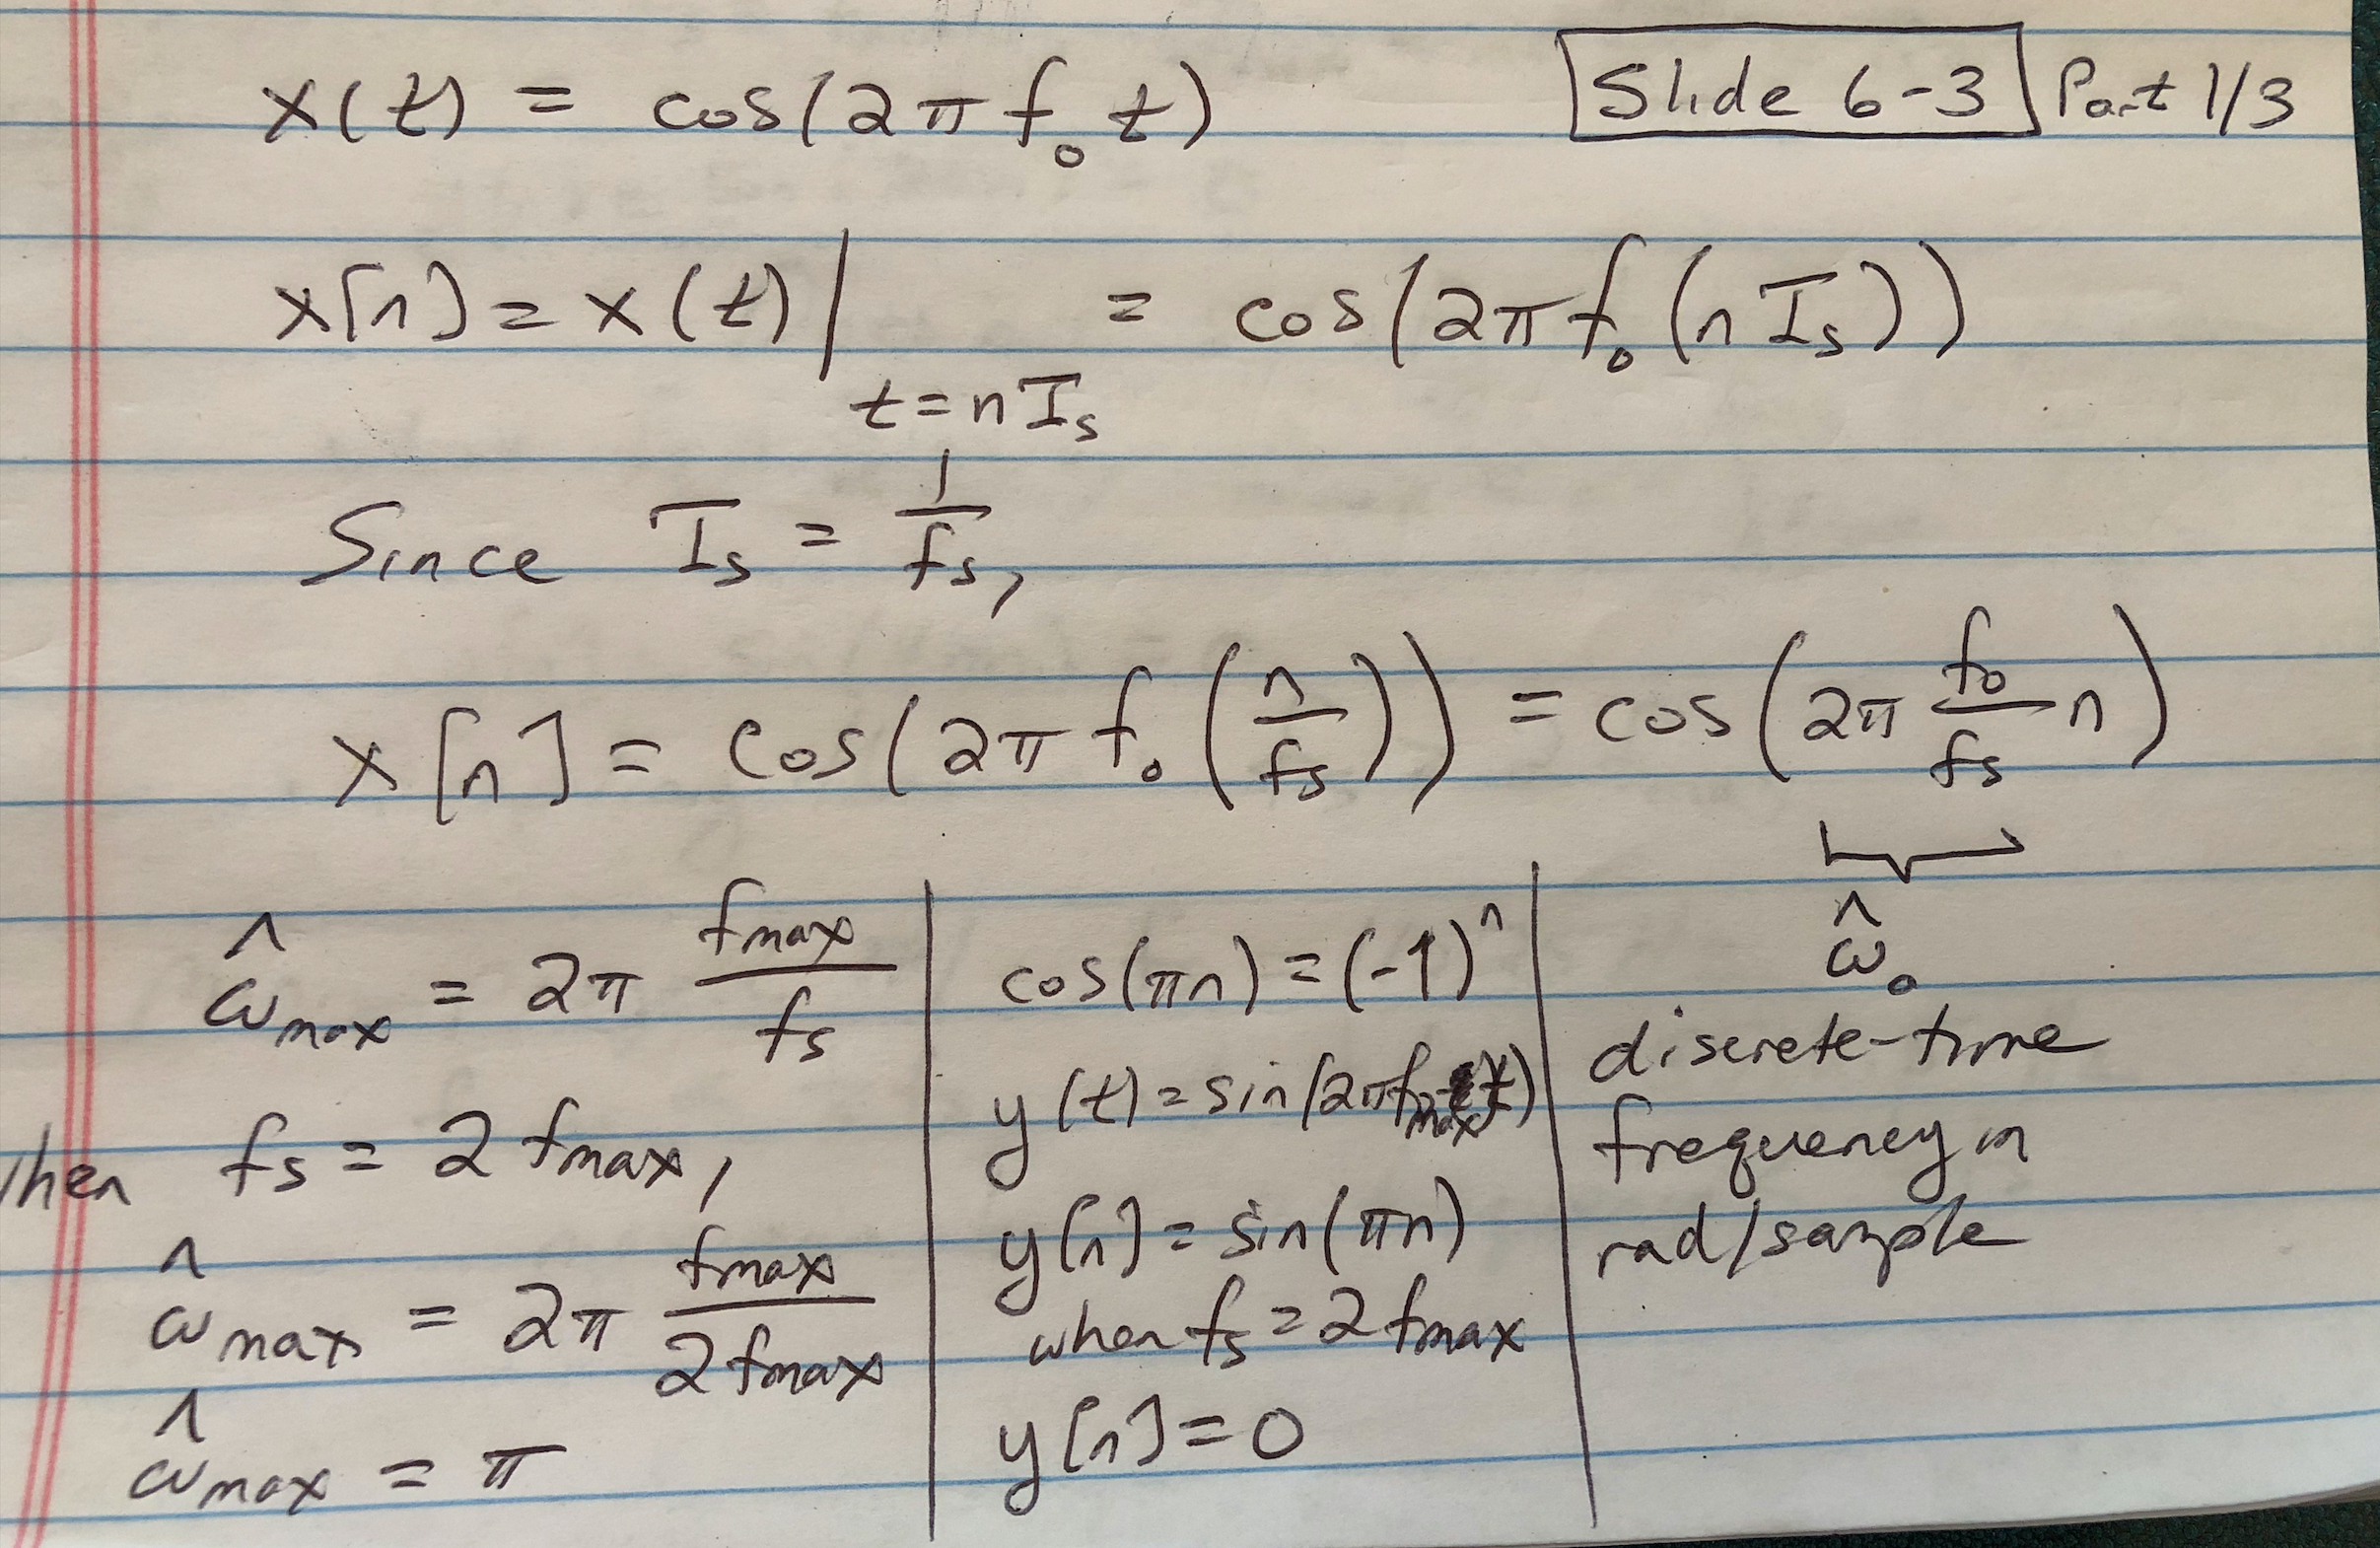 x(t) = cos(2π f₀ t)
Slide 6-3 Part 1/3
x[n] = x(t) | t = nTs = cos(2π f₀ (n Ts))
Since Ts = 1/fs,
x[n] = cos(2π f₀ (n/fs)) = cos(2π f₀/fs n)
ω̂₀
discrete-time
frequency in
rad/sample
ω̂max = 2π fmax/fs
when fs = 2 fmax,
ω̂max = 2π fmax/2 fmax
ω̂max = π
cos(πn) = (-1)ⁿ
y(t) = sin(2π fmax t)
y[n] = sin(πn)
when fs = 2 fmax
y[n] = 0